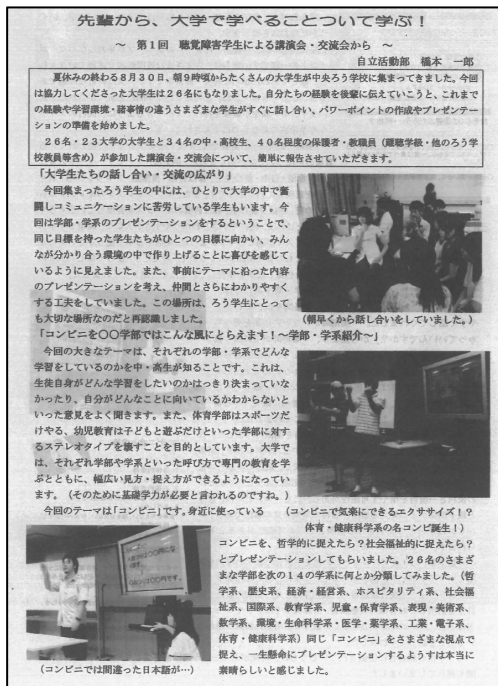 先輩から、大学で学べることついて学ぶ！
～ 第１回 聴覚障害学生による講演会・交流会から ～
自立活動部 橋本 一郎
夏休みの終わる８月３０日、朝９時頃からたくさんの大学生が中央ろう学校に集まってきました。今回
は協力してくださった大学生は２６名にもなりました。自分たちの経験を後輩に伝えていこうと、これまで
の経験や学習環境・諸事情の違うさまざまな学生がすぐに話し合い、パワーポイントの作成やプレゼンテー
ションの準備を始めました。
２６名・２３大学の大学生と３４名の中・高校生、４０名程度の保護者・教職員（難聴学級・他のろう学
校教員等含め）が参加した講演会・交流会について、簡単に報告させていただきます。
「大学生たちの話し合い・交流の広がり」
今回集まったろう学生の中には、ひとりで大学の中で奮
闘しコミュニケーションに苦労している学生もいます。今
回は学部・学系のプレゼンテーションをするということで、
同じ目標を持った学生たちがひとつの目標に向かい、みん
なが分かり合う環境の中で作り上げることに喜びを感じて
いるように見えました。また、事前にテーマに沿った内容
のプレゼンテーションを考え、仲間とさらにわかりやすく
する工夫をしていました。この場所は、ろう学生にとって
も大切な場所なのだと再認識しました。
（朝早くから話し合いをしていました。）
「コンビニを〇〇学部ではこんな風にとらえます！～学部・学系紹介～」
今回の大きなテーマは、それぞれの学部・学系でどんな
学習をしているのかを中・高生が知ることです。これは、
生徒自身がどんな学習をしたいのかはっきり決まっていな
かったり、自分がどんなことに向いているかわからないと
いった意見をよく聞きます。また、体育学部はスポーツだ
けやる、幼児教育は子どもと遊ぶだけといった学部に対す
るステレオタイプを壊すことを目的としています。大学で
は、それぞれ学部や学系といった呼び方で専門の教育を学
ぶとともに、幅広い見方・捉え方ができるようになってい
ます。（そのために基礎学力が必要と言われるのですね。）
今回のテーマは「コンビニ」です。身近に使っている
（コンビニで気楽にできるエクササイズ！？
体育・健康科学系の名コンビ誕生！）
コンビニを、哲学的に捉えたら？社会福祉的に捉えたら？
とプレゼンテーションしてもらいました。２６名のさまざ
まな学部を次の１４の学系に何とか分類してみました。（哲
学系、歴史系、経済・経営系、ホスピタリティ系、社会福
祉系、国際系、教育学系、児童・保育学系、表現・美術系、
数学系、環境・生命科学系・医学・薬学系、工業・電子系、
体育・健康科学系）同じ「コンビニ」をさまざまな視点で
捉え、一生懸命にプレゼンテーションするようすは本当に
素晴らしいと感じました。
（コンビニでは間違った日本語が…）